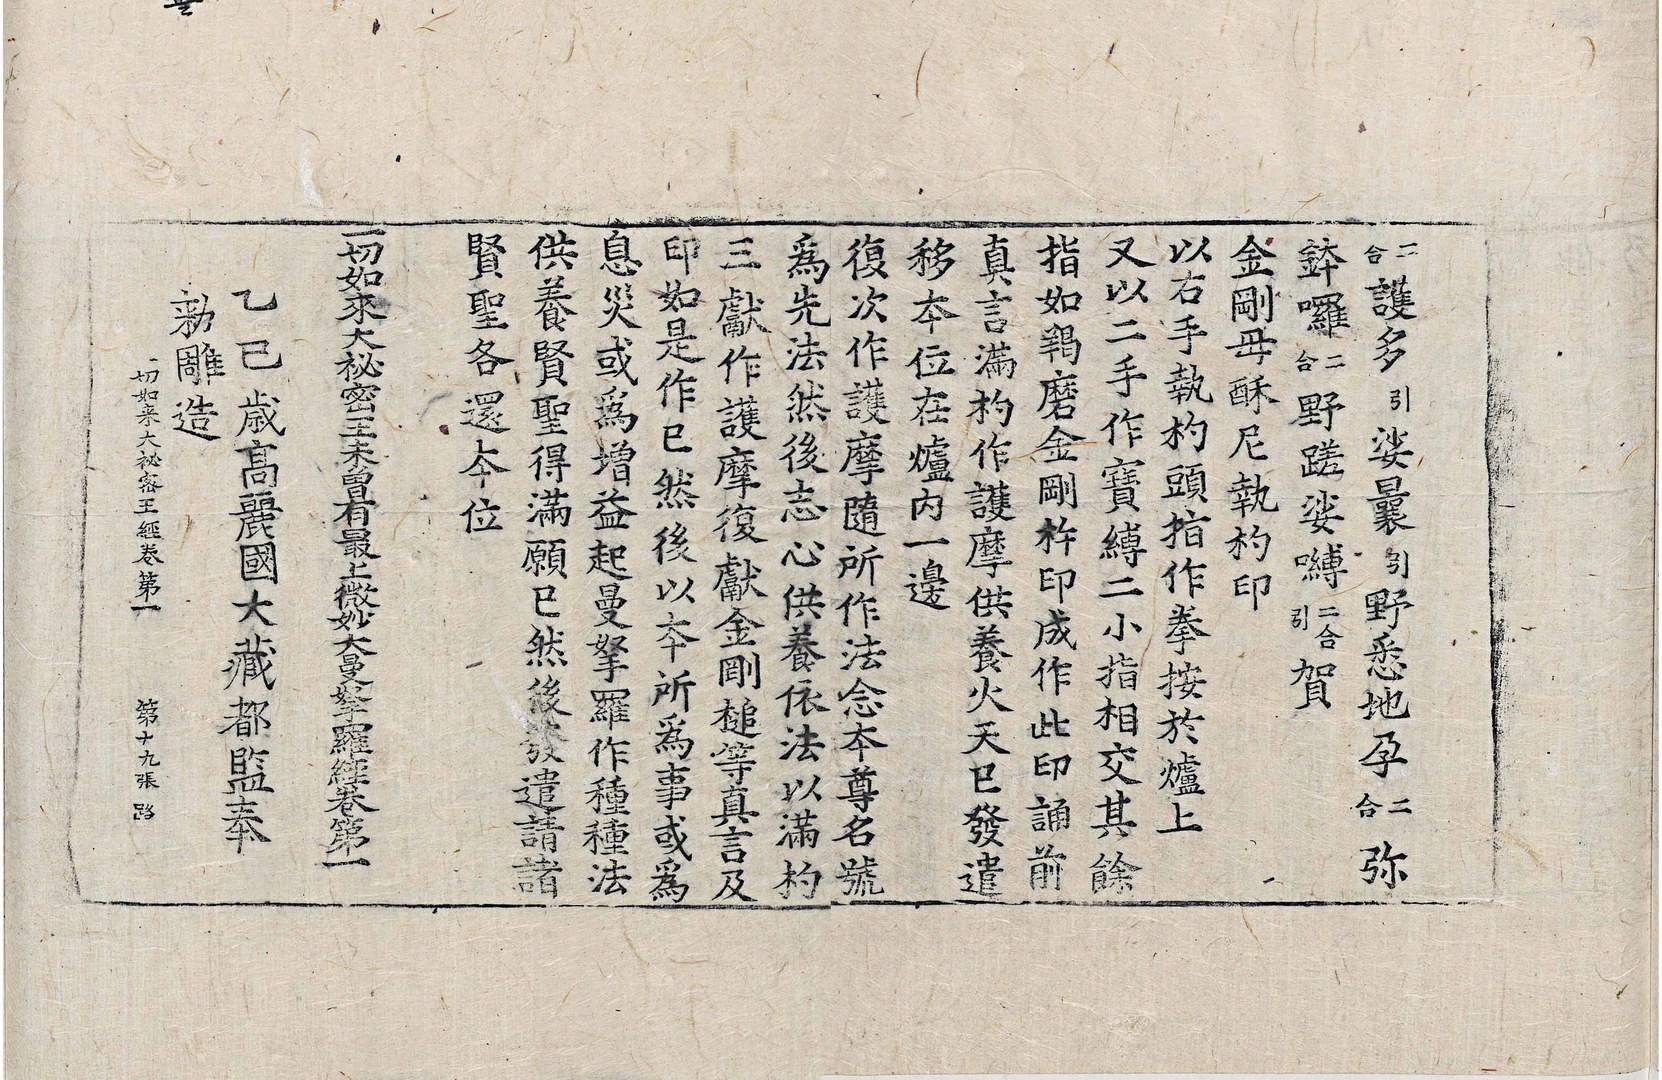 二合護多引娑曩引野悉地孕二合弥
鉢囉二合野蹉娑嚩二合引賀
金剛毋酥尼執杓印
以右手執杓頭指作拳按於爐上
又以二手作寶縛二小指相交其餘
指如羯磨金剛杵印成作此印誦前
真言滿杓作護摩供養火天已發遣
移本位在爐內一邊
復次作護摩隨所作法念本尊名號
爲先法然後志心供養依法以滿杓
三獻作護摩復獻金剛槌等真言及
印如是作已然後以本所爲事或爲
息災或爲增益起曼拏羅作種種法
供養賢聖得滿願已然後發遣請諸
賢聖各還本位
一切如來大祕密王未曾有最上微妙大曼拏羅經卷第一
乙巳歲高麗國大藏都監奉
勑雕造
一切如來大祕密王經卷第一 第十九張 路